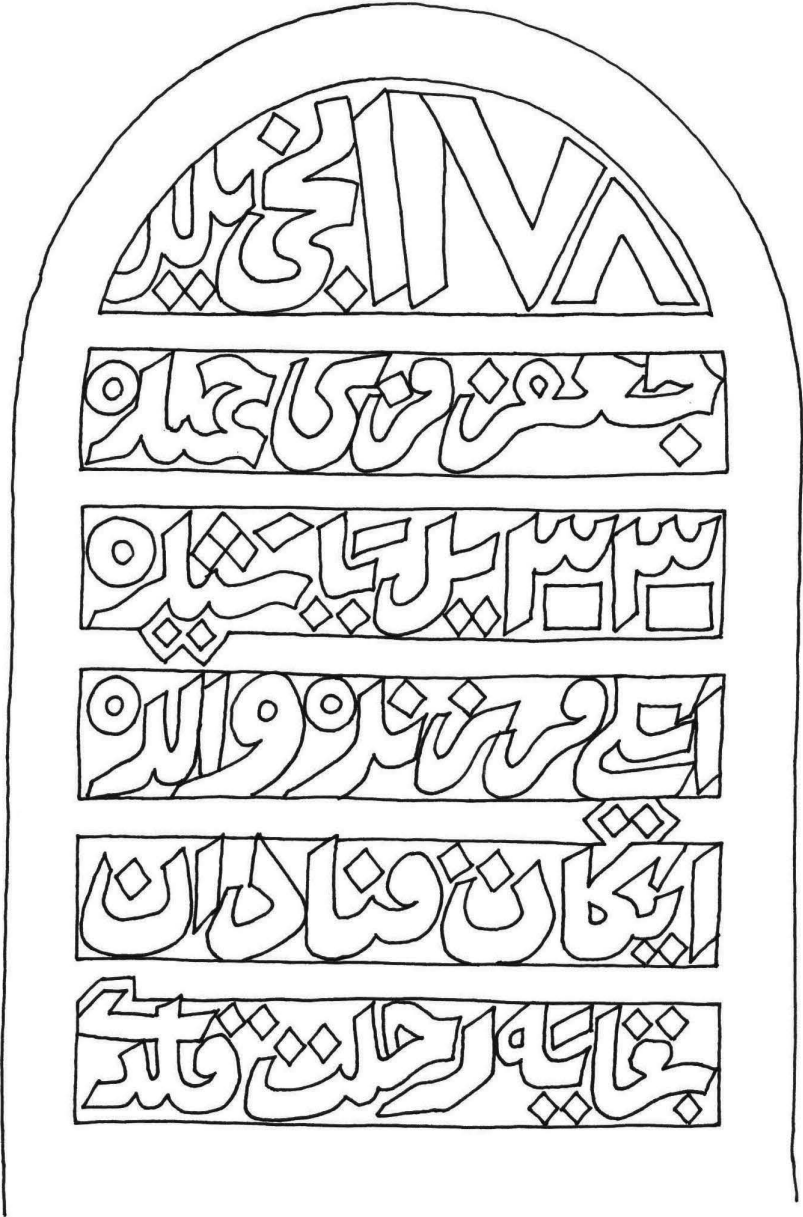 ١١٧٨ نجی یلد
جعفر قزی حمیده
٣٣ یل یاشیده
اکی فرزنده والده
ایکان فنادان
بقایه رحلت قلدی